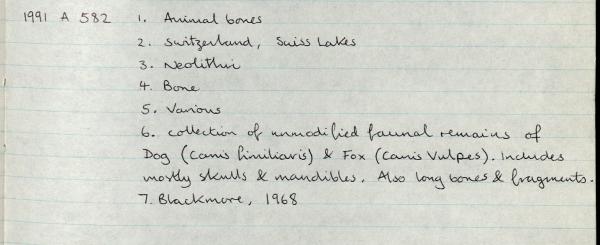 1991 A 582 1. Animal bones
2. Switzerland, Swiss Lakes
3. Neolithic
4. Bone
5. Various
6. Collection of unmodified faunal remains of
Dog (Canis finiliaris) & Fox (Canis Vulpes). Includes
mostly skulls & mandibles. Also long bones & fragments.
7. Blackmore, 1968